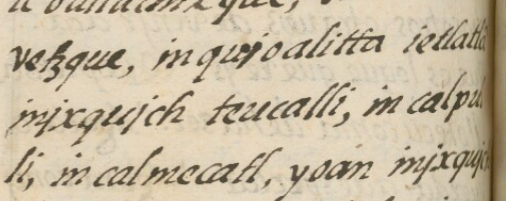 vetzque, in quioalitta ietlatla
injxqujch teucalli, in calpul
li, in calmecatl, yoan injxqujch